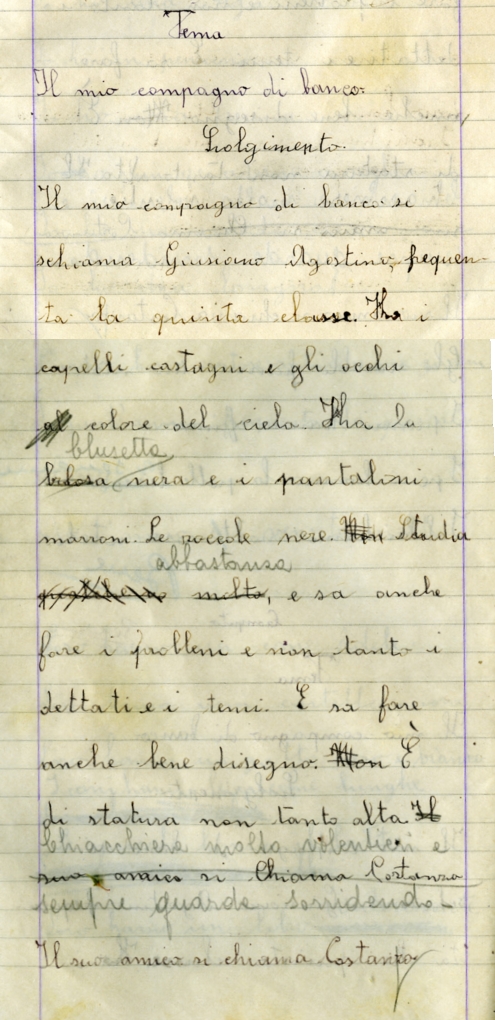 Tema
Il mio compagno di banco.
Svolgimento.
Il mio compagno di banco si
schiama Giusiano Agostino, frequen-
ta la quinta classe. Ha i
capelli castagni e gli occhi
colore del cielo. Ha la
blusetta
nera e i pantaloni
marroni. Le zoccole nere. Non Studia
abbastanza
molto, e sa anche
fare i problemi e non tanto i
dettati e i temi. E sa fare
anche bene disegno. Non È
di statura non tanto alta. Il
Chiacchiera molto volentieri e
suo amico si chiama Costanzo
sempre guarda sorridendo -
Il suo amico si chiama Costanzo